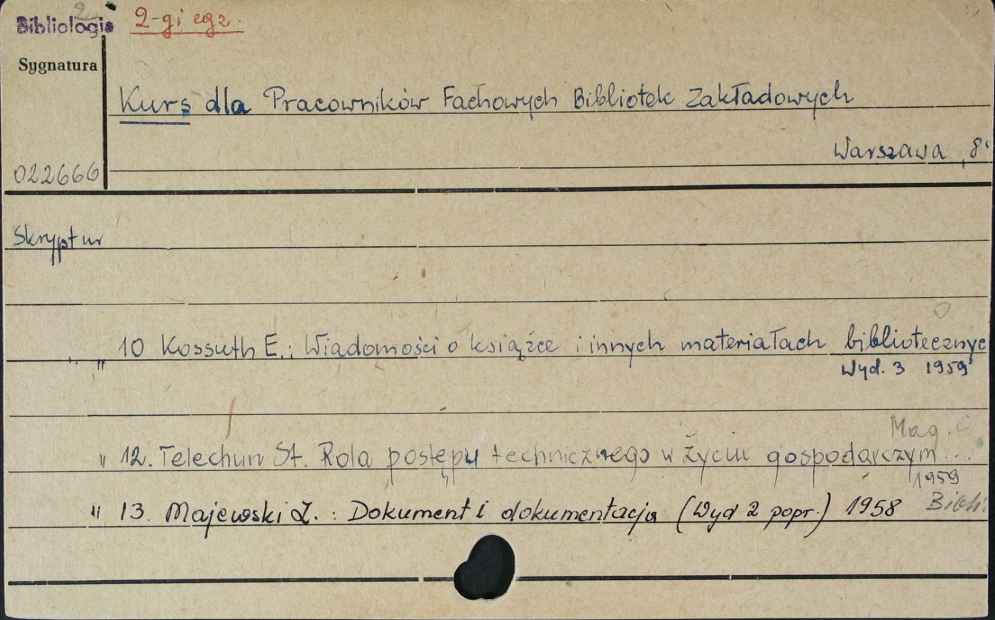 Bibliologia 2-gi egz.
Sygnatura
Kurs dla Pracowników Fachowych Bibliotek Zakładowych
Warszawa 8°
022666
Skryptur
" 10 Kossuth E.: Wiadomości o książce i innych materiałach bibliotecznyc
Wyd. 3 1959
Mag.
" 12. Telechun St. Rola postępu technicznego w życiu gospodarczym
1959
" 13. Majewski Z.: Dokument i dokumentacja (Wyd 2 popr.) 1958 Bibli